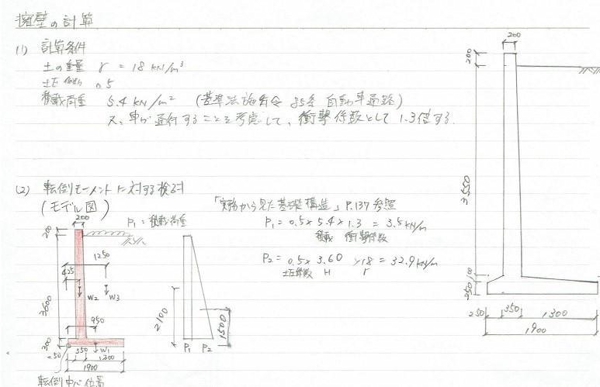 擁壁の計算
(1) 計算条件
土の重量 γ = 18 kN/m³
土圧係数 0.5
積載荷重 5.4 kN/m² (基準法施行令 85条 自動車通路)
又、車が通行することを考慮して、衝撃係数として 1.3倍する
(2) 転倒モーメントに対する検討
(モデル図)
「実務から見た基礎構造」P.137 参照
P₁ = 積載荷重
P₁ = 0.5 × 5.4 × 1.3 = 3.5 kN/m
積載 衝撃係数
P₂ = 0.5 × 3.60 × 18 = 32.9 kN/m
土圧係数 H γ
200
1250
625
W₂ W₃
950
3500
300
W₁
250 350 1300
1900
転倒中心位置
2100
P₁ P₂
1500
200
200
3500
250
250 350 1300
1900